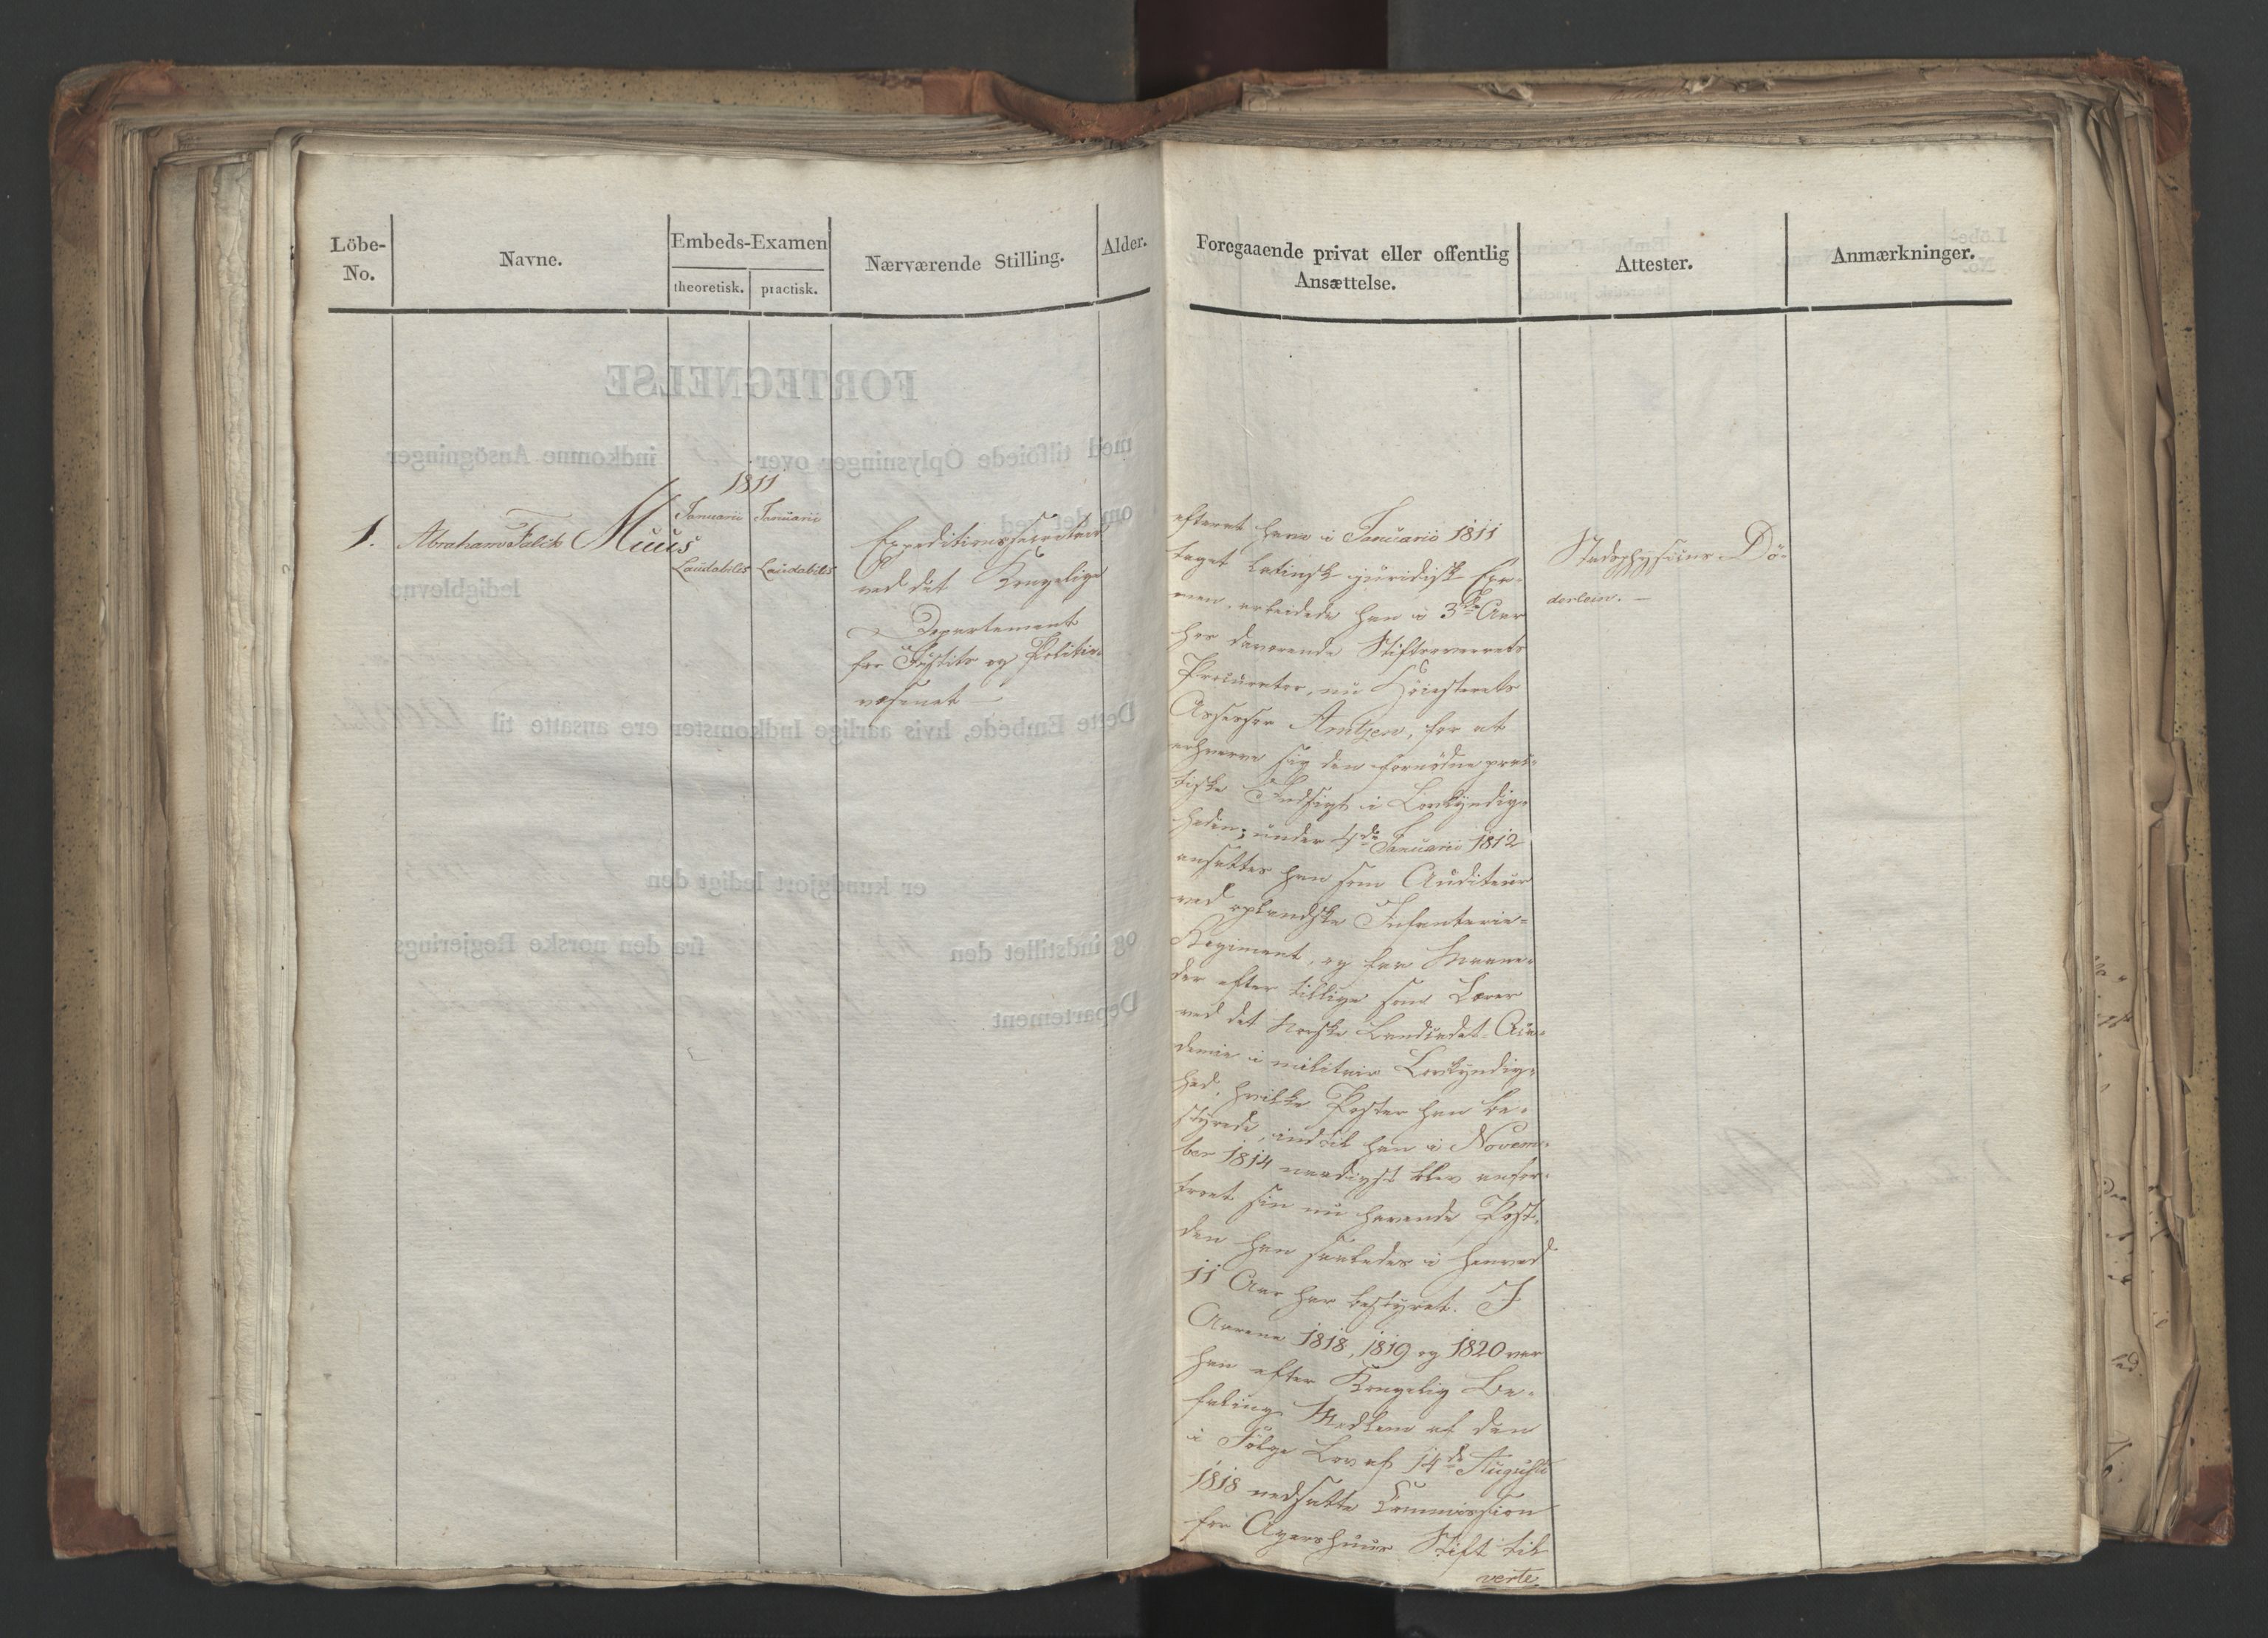 Löbe-No.
Navne.
Embeds-Examen
theoretisk.
practisk.
Nærværende Stilling.
Alder.
Foregaaende privat eller offentlig
Ansættelse.
Attester.
Anmærkninger.
1811
Januarii Januarii
1. Abraham Falck Muus
Laudabilis Laudabilis
Expeditionssecretair
ved det Kongelige
Departement
for Justits og Politie-
væsenet —
efterat have i Januario 1811
taget Latinsk juridisk Exa-
men, arbeidede han i 3 Aar
hos daværende Stiftsoverrets
Procurator, nu Höiesterets
Assessor Arntzen, for at
erhverve sig den fornödne prac-
tiske Indsigt i Lovkyndig-
heden; under 4de Januarii 1812
ansattes han som Auditeur
ved oplandske Infanterie-
Regiment, og faa Maane-
der efter tillige som Lærer
ved det Norske Landcadet-Aca-
demie i militair Lovkyndig-
hed, hvilke Poster han be-
styrede, indtil han i Novem-
ber 1814 naadigst blev anfor-
troet sin nu havende Post,
den han saaledes i henved
11 Aar har bestyret. I
Aarene 1818, 1819 og 1820 var
han efter Kongelig Be-
faling Medlem af den
i Fölge Lov af 14de August
1818 nedsatte Commission
for Agershuus Stift til
verte
Stadsphysicus Dö-
derlein. —
FORTEGNELSE
med tilföiede Oplysninger over indkomne Ansögninger
om det ved
ledigblevne
Dette Embede, hvis aarlige Indkomster ere ansatte til
er kundgjort ledigt den
og indstillet den fra den norske Regjerings
Departement